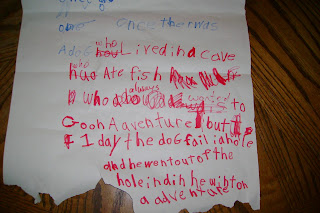 once therwas
A doG who Lived in a cave
who Ate fish
who always wanted to
Go on A aventure but
1 day the doG fall i a hole
and he wen tout of the
hole in did he wib ton
a adventure